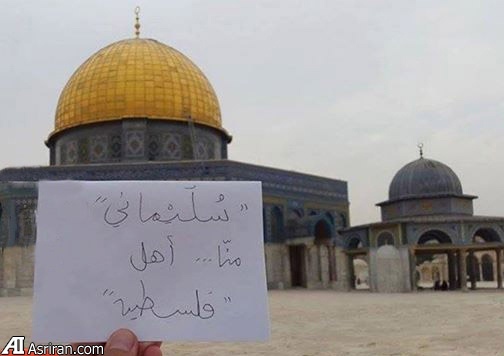 "سُلَيْماني"
منّا... أهل
"فلسطين"
AI Asriran.com